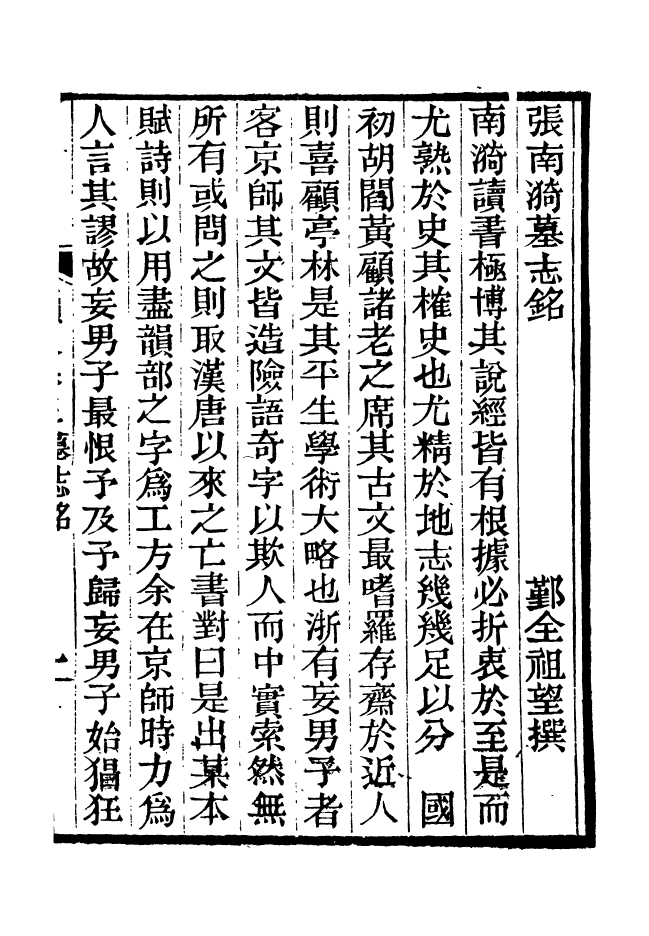 張南漪墓志銘　鄞全祖望撰
南漪讀書極博其說經皆有根據必折衷於至是而
尤熟於史其榷史也尤精於地志幾幾足以分　國
初胡閻黃顧諸老之席其古文最嗜羅存齋於近人
則喜顧亭林是其平生學術大略也浙有妄男子者
客京師其文皆造險語奇字以欺人而中實索然無
所有或問之則取漢唐以來之亡書對曰是出某本
賦詩則以用盡韻部之字爲工方余在京師時力爲
人言其謬故妄男子最恨予及予歸妄男子始猖狂
墓志銘